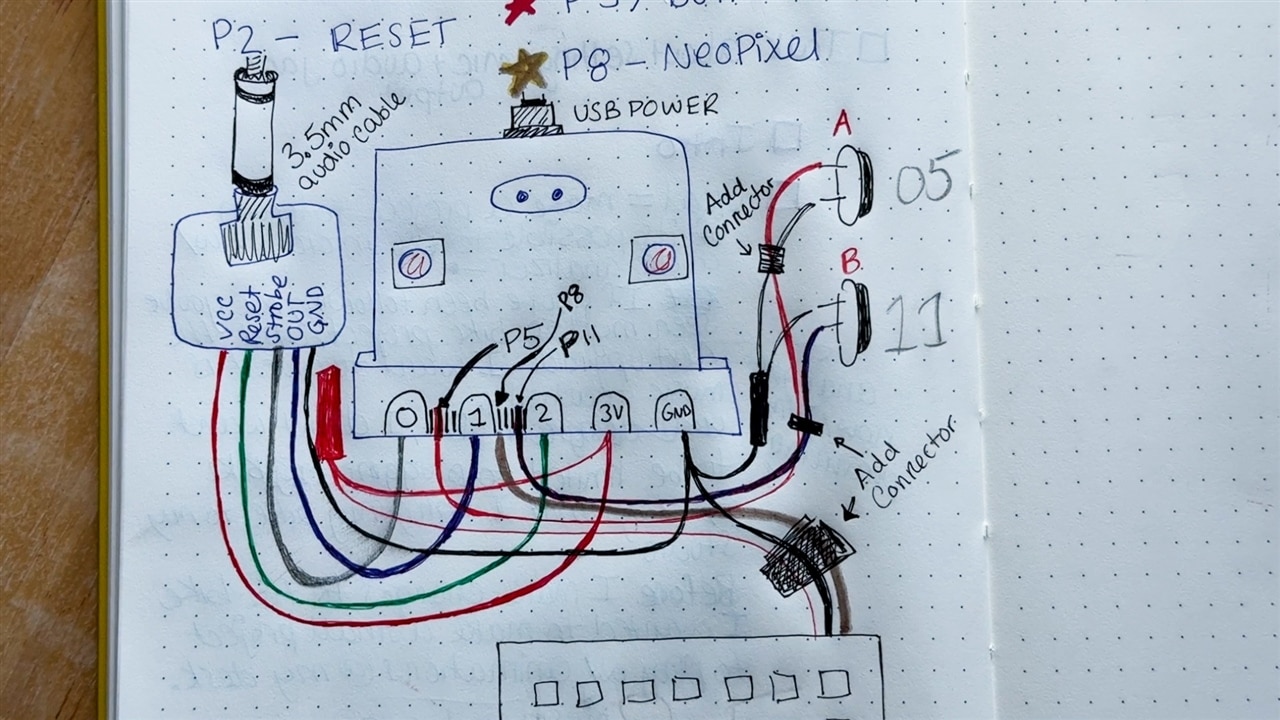 P2 - RESET
P8 - NeoPixel
USB POWER
3.5mm
audio cable
A
05
Add
Connector
B
11
VCC
Reset
Strobe
OUT
GND
P8
P5
P11
0
1
2
3V
GND
Add
Connector